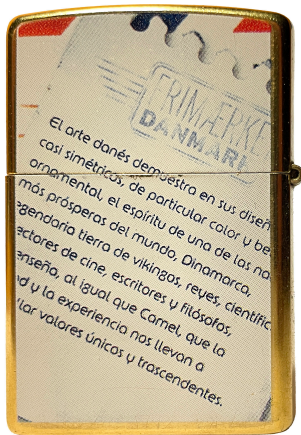 FRIMÆRKE
DANMARK
El arte danés demuestra en sus diseñ
casi simétricos, de particular color y be
ornamental, el espíritu de una de las na
más prósperas del mundo, Dinamarca,
egendaria tierra de vikingos, reyes, científic
ectores de cine, escritores y filósofos,
enseña, al igual que Camel, que la
d y la experiencia nos llevan a
lar valores únicos y trascendentes.